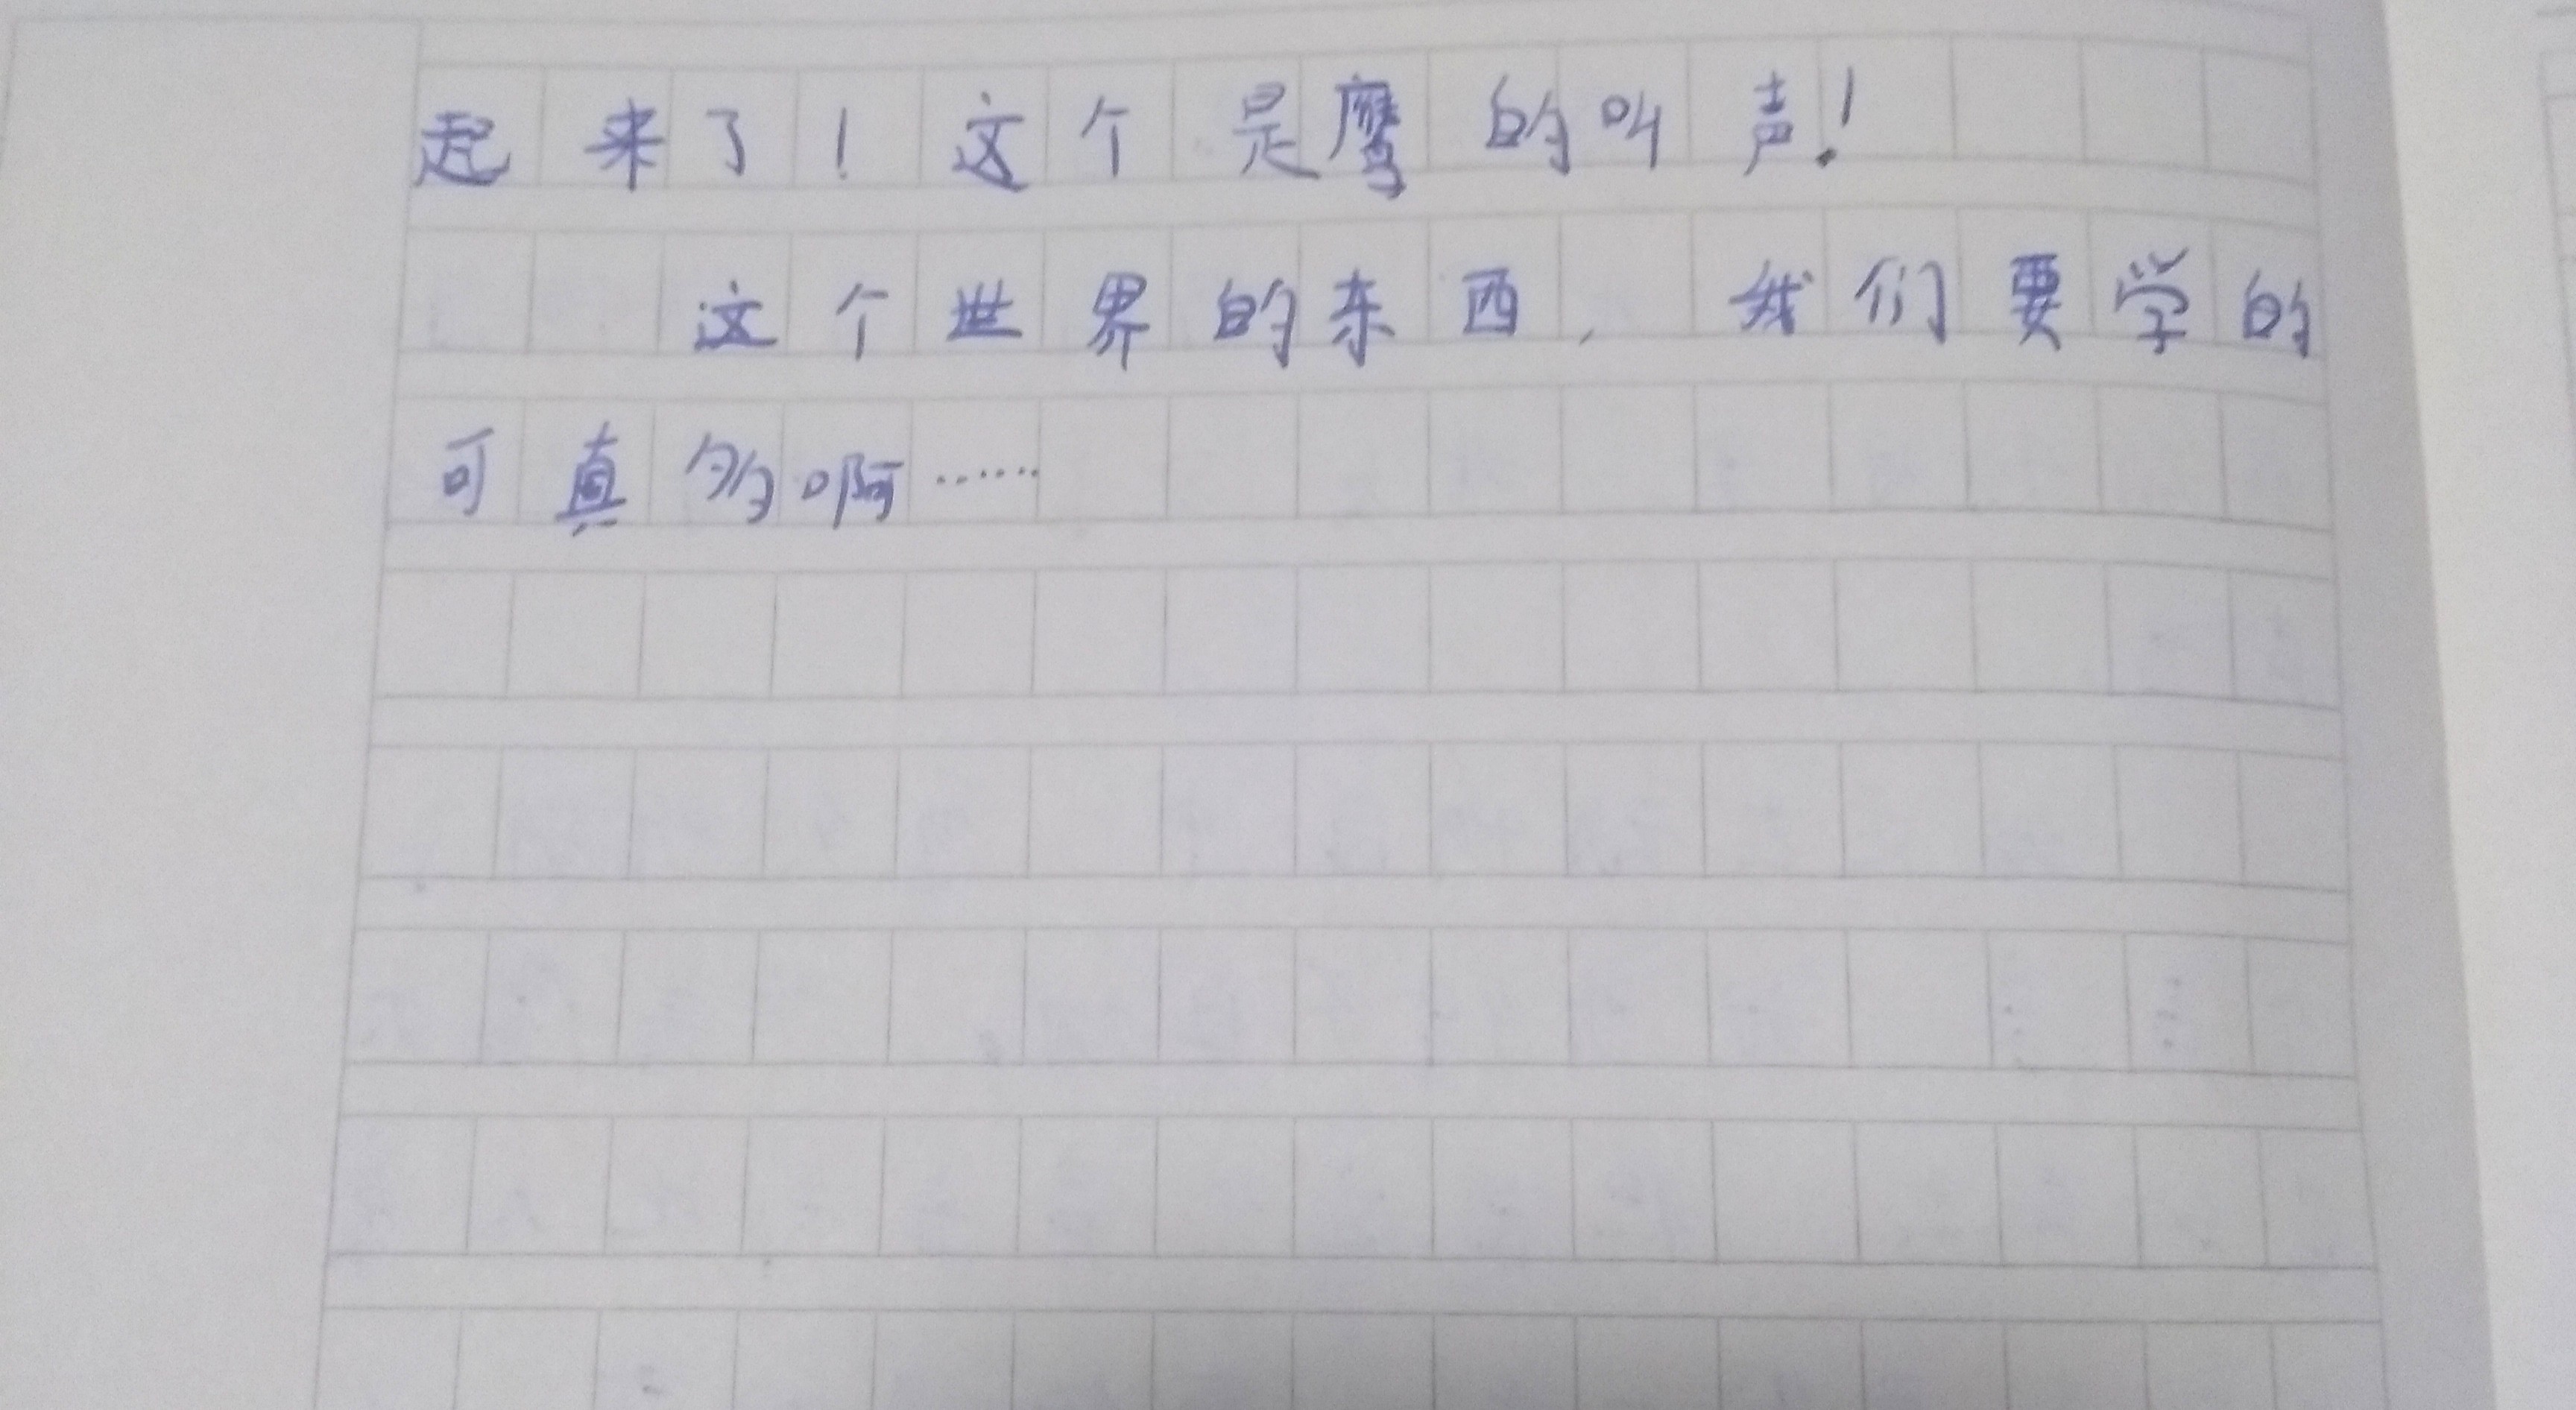 起来了！这个是鹰的叫声！
这个世界的东西，我们要学的
可真多啊……